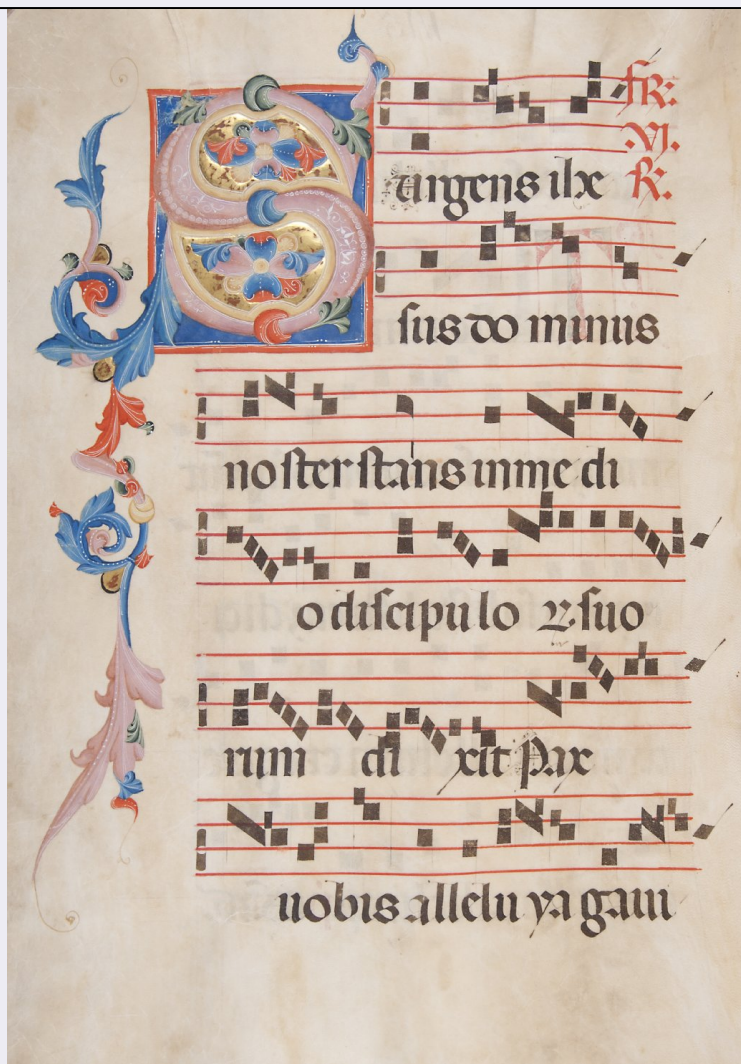 Surgens ilxe
sus do minus
noster stans in me di
o discipu lo ꝝ suo
rum di xit pax
uobis allelu ya gaui
FR:
VI.
R.